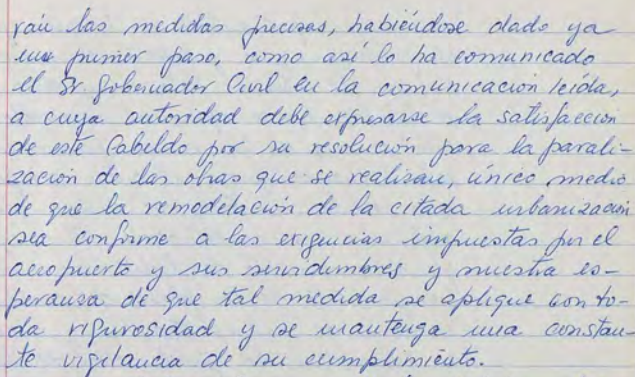 rán las medidas precisas, habiéndose dado ya
un primer paso, como así lo ha comunicado
el Sr. Gobernador Civil en la comunicación leída,
a cuya autoridad debe expresarse la satisfacción
de este Cabildo por su resolución para la parali-
zación de las obras que se realizan, único medio
de que la remodelación de la citada urbanización
sea conforme a las exigencias impuestas por el
aeropuerto y sus servidumbres y nuestra es-
peranza de que tal medida se aplique con to-
da rigurosidad y se mantenga una constan-
te vigilancia de su cumplimiento.